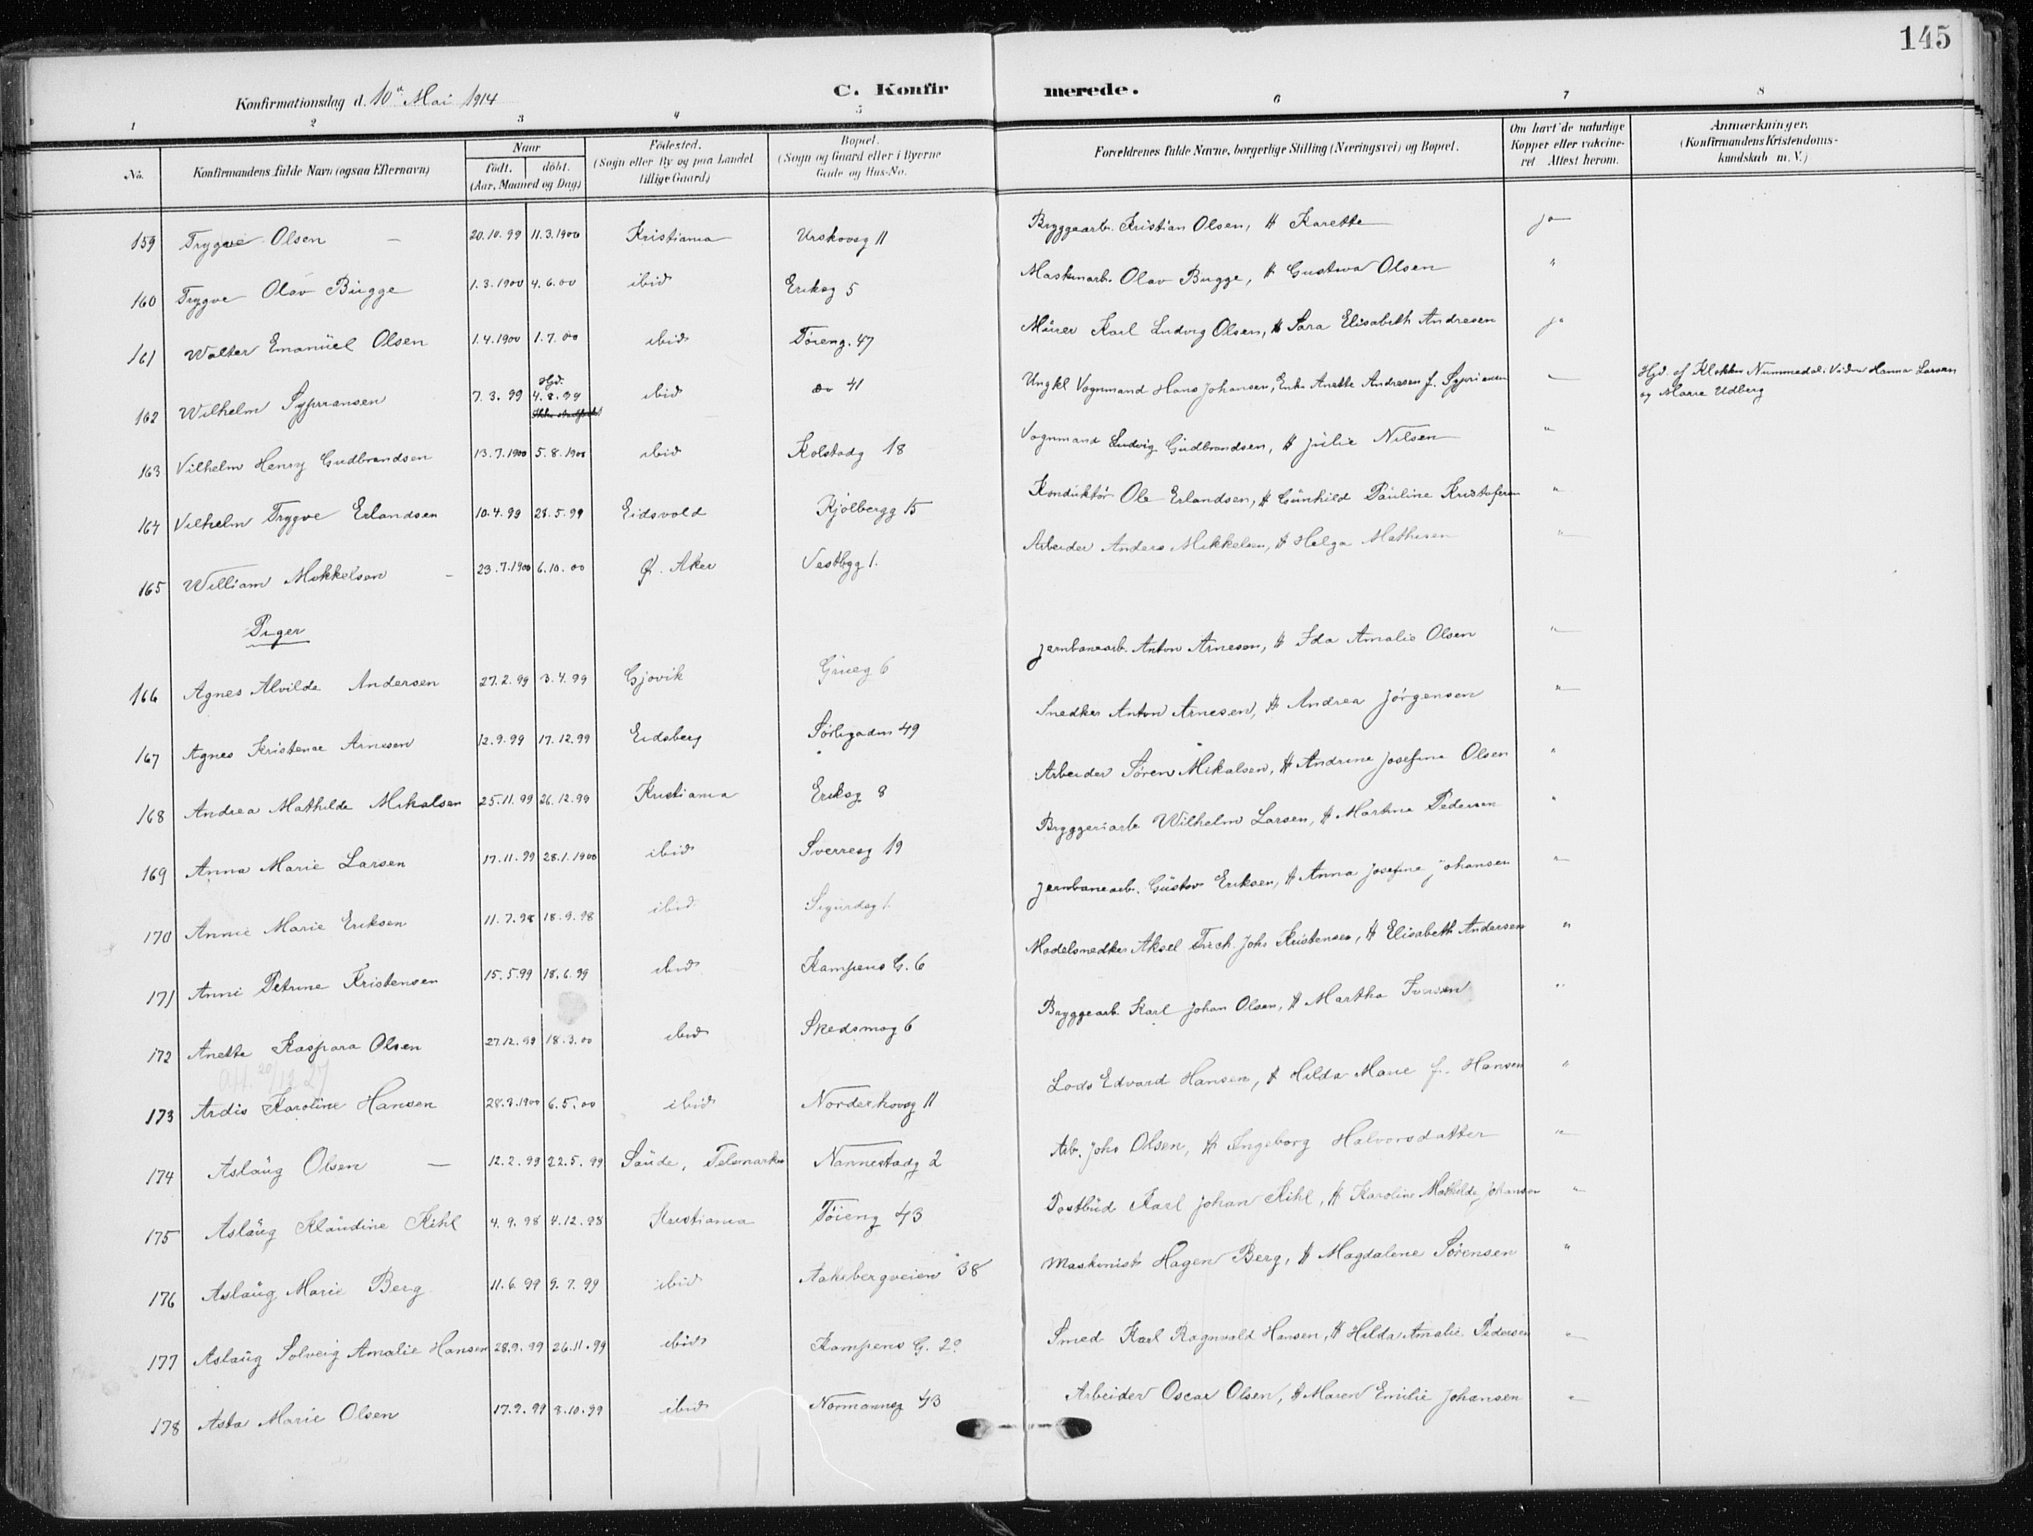 145
Konfirmationsdag d. 10de Mai 1914
C. Konfirmerede.
1 2 3 4 5 6 7 8
No. Konfirmandens fulde Navn (ogsaa Efternavn) Naar født. døbt. (Aar, Maaned og Dag) Fødested. (Sogn eller By og paa Landet tillige Gaard) Bopæl. (Sogn og Gaard eller i Byerne Gade og Hus-No. Forældrenes fulde Navne, borgerlige Stilling (Næringsvei) og Bopæl. Om havt de naturlige Kopper eller vakcineret Attest herom. Anmærkninger. (Konfirmandens Kristendomskundskab m. V.)
159 Trygve Olsen — 20.10.99 11.3.1900 Kristiania Urskovsg 11 Bryggearb. Kristian Olsen, H Karette ja
160 Trygve Olav Bugge 1.3.1900 4.6.00 ibid Eriksg 5 Maskinarb. Olav Bugge, H Gustava Olsen "
161 Walter Emanuel Olsen 1.4.1900 1.7.00 ibid Tøieng. 47 Murer Karl Ludvig Olsen, H Sara Elisabeth Andresen ja
162 Wilhelm Syprransen 7.3.99 Hjd. 4.8.99 ibid do 41 Ungkl Vognmand Hans Johansen, Enke Anette Andresen f. Sypriansen — Hjd. af Klokker Nummedal. Vidner Hanna Larsen og Marie Udberg
163 Vilhelm Henry Gudbrandsen 13.7.1900 5.8.1900 ibid Kolstadg 18 Vognmand Ludvig Gudbrandsen, H Julie Nilsen "
164 Vilhelm Trygve Erlandsen 10.4.99 28.5.99 Eidsvold Kjølbergg 15 Konduktør Ole Erlandsen, H Gunhild Pauline Kristofersen "
165 William Mikkelsen — 23.7.1900 6.10.00 Ø. Aker Vestbyg 1. Arbeider Anders Mikkelsen, H Helga Mathisen "
Piger
166 Agnes Alvilde Andersen 27.2.99 3.4.99 Gjøvik Grueg 6 Jernbanearb. Anton Arnesen, H Ida Amalie Olsen "
167 Agnes Kristense Arnesen 12.9.99 17.12.99 Eidsberg Sørligaden 49 Snedker Anton Arnesen, H Andrea Jørgensen "
168 Andrea Mathilde Mikalsen 25.11.99 26.12.99 Kristiania Eriksg 8 Arbeider Søren Mikalsen, H Andrine Josefine Olsen "
169 Anna Marie Larsen 17.11.99 28.1.1900 ibid Sverresg 19 Bryggeriarb Wilhelm Larsen, H Martine Pedersen "
170 Annie Marie Eriksen 11.7.98 18.9.98 ibid Sigurdsg 1. Jernbanearb. Gustav Eriksen, H Anna Josefine Johansen "
171 Anni Petrine Kristensen 15.5.99 18.6.99 ibid Kampens G. 6 Modelsnedker Aksel Fred. Johs Kristensen, H Elisabeth Andersen "
172 Anette Kaspara Olsen 27.12.99 18.3.00 ibid Skedsmog 6 Bryggearb. Karl Johan Olsen, H Martha Iversen "
att. 20/12 27
173 Ardis Karoline Hansen 28.3.1900 6.5.00 ibid Norderhovsg 11 Lods Edvard Hansen, H Hilda Marie f. Hansen "
174 Aslaug Olsen — 12.2.99 22.5.99 Saude, Telemarken Nannestadg 2 Arb. Johs Olsen, H Ingeborg Halvorsdatter "
175 Aslaug Klaudine Kihl 4.9.98 4.12.98 Kristiania Tøieng 43 Postbud Karl Johan Kihl, H Karoline Mathilde Johansen "
176 Aslaug Marie Berg 11.6.99 9.7.99 ibid Aakebergveien 38 Maskinist Hagen Berg, H Magdalene Sørensen "
177 Aslaug Solveig Amalie Hansen 28.9.99 26.11.99 ibid Kampens G. 20 Smed Karl Ragnvald Hansen, H Hilda Amalie Pedersen "
178 Asta Marie Olsen 17.9.99 8.10.99 ibid Normannsg 43 Arbeider Oscar Olsen, H Maren Emilie Johansen "